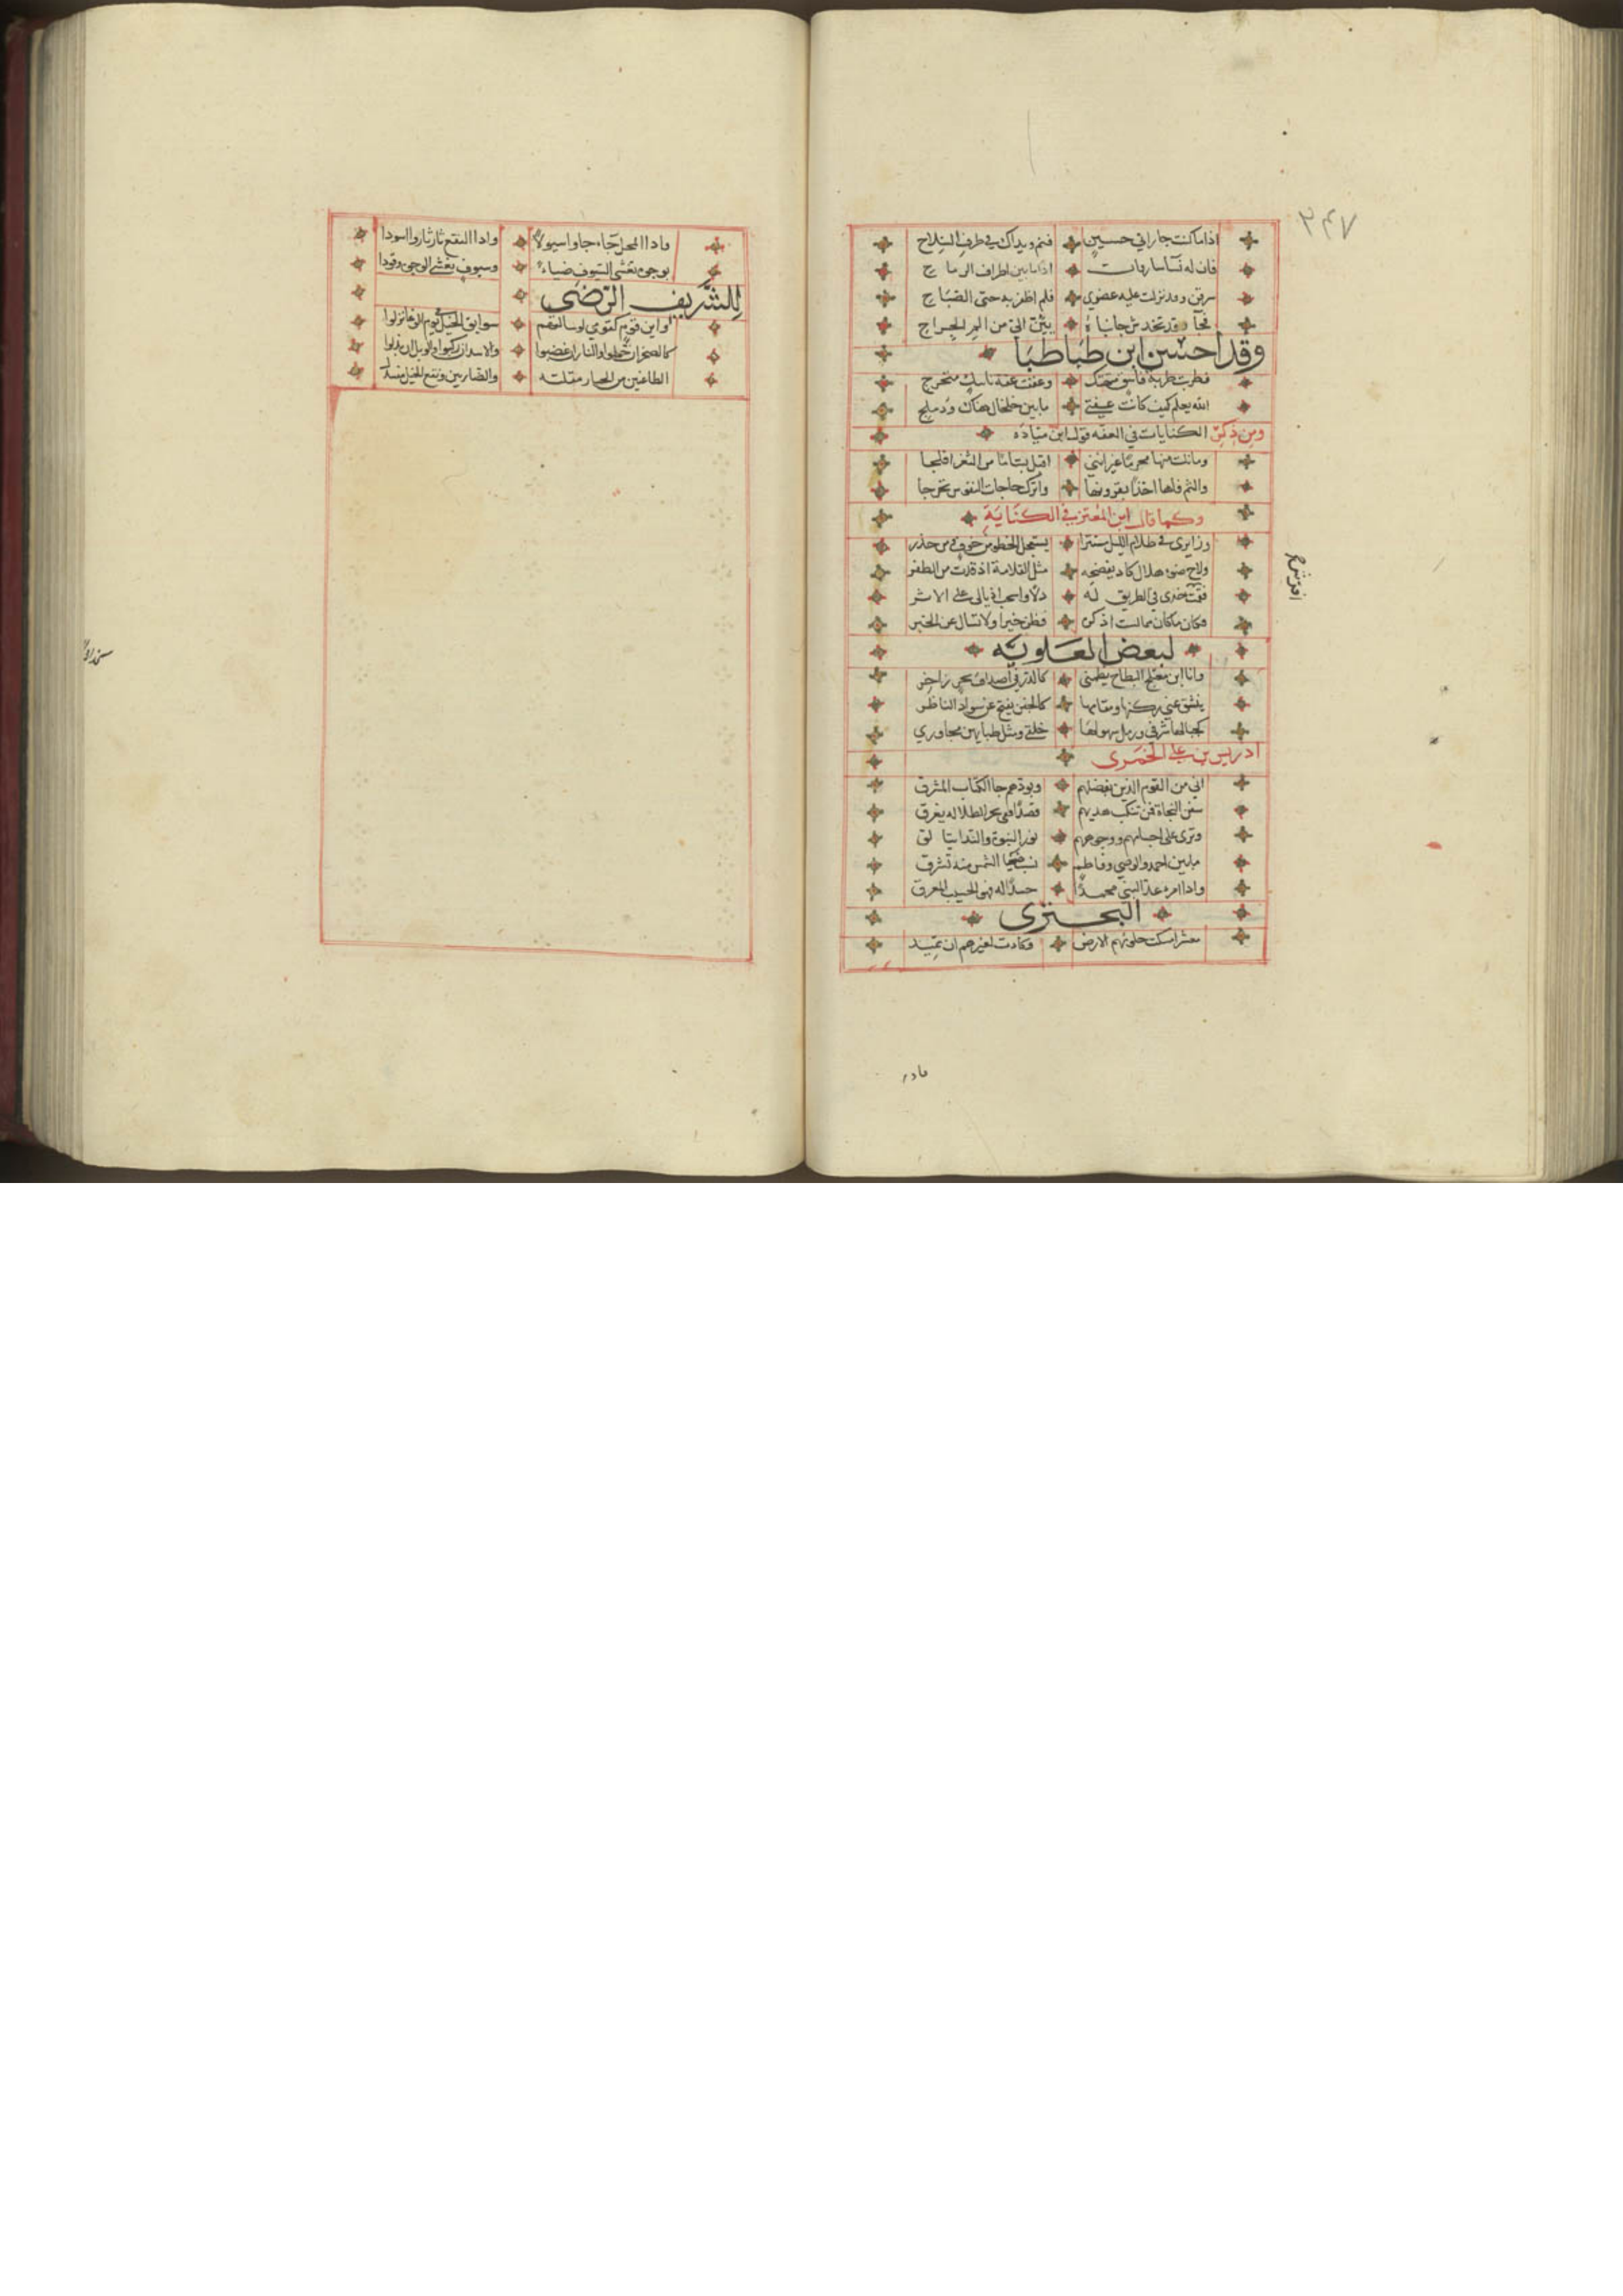 ٣٤٧
اذا ما كنت جار ابي حسين فنم ويداك في طرف السلاح
فان له نسا سارقات اذا ما بين اطراف الرماح
سرقن وقد نزلت عليه عضوي فلم اظفر به حتى الصباح
فجآ وقد تخدش جانباه يئن اليّ من الم الجراح
وقد احسن ابن طباطبا
فطربت طربة فاسق متهتك وعففت عفة ناسك متحرج
الله يعلم كيف كانت عفتي ما بين خلخال هناك ودملج
ومن ذكر الكنايات في العفه قول ابن مياده
وما نلت منها محرما غير انني اقبل بساما من الثغر افلجا
والثم فاها اخذا بقرونها واترك حاجات النفوس تحرجا
وكما قال ابن المعتز في الكناية
وزايرى في ظلام الليل مستترا يستعجل الخطو من خوف ومن حذر
ولاح ضوء هلال كاد يفضحه مثل القلامة اذ قدت من الظفر
فقمت خدى في الطريق له ذلا واسحب اذيالى على الاثر
افرش
فكان مكان مما لست اذكره فظن خيرا ولا تسال عن الخبر
لبعض العلويه
وانا ابن معتلج البطاح يظمنى كالدر في اصداف بحر زاخر
ينشق عني ركنها ومقامها كالجفن يفتح عن سواد الناظر
كجبالها شرفي ورمل سهولها خلقي ومثل ظبايهن مجاوري
ادريس بن علي الخمرى
اني من القوم الذين بفضلهم وبودهم جا الكتاب المشرق
سفن النجاة فمن تنكب هديهم قصدا ففي بحر الظلاله يغرق
وترى على اجسامهم ووجوههم نور النبوة والندا يتالق
ما بين احمد والوصي وفاطم نسب ضحيا الشمس منه تشرق
واذا امرء عد النبي محمدا حسبا له فهو الحسيب المعرق
البحترى
معشر امسكت حلومهم الارض وكادت لغيرهم ان تميد
فادا
واذا المحل جاء جاوا سيولا واذا النقع ثار ثاروا اسودا
بوجوه تغشى السيوف ضياء وسيوف تغشى الوجوه وقودا
للشريف الرضى
سوابق الخيل يوم الوغا نزلوا
كالصخر ان حملوا والنار ان غضبوا والاسد ان ركبوا والوبل ان بذلوا
الطاعنين من الجبار مقلته والضاربين ونقع الخيل منسدل